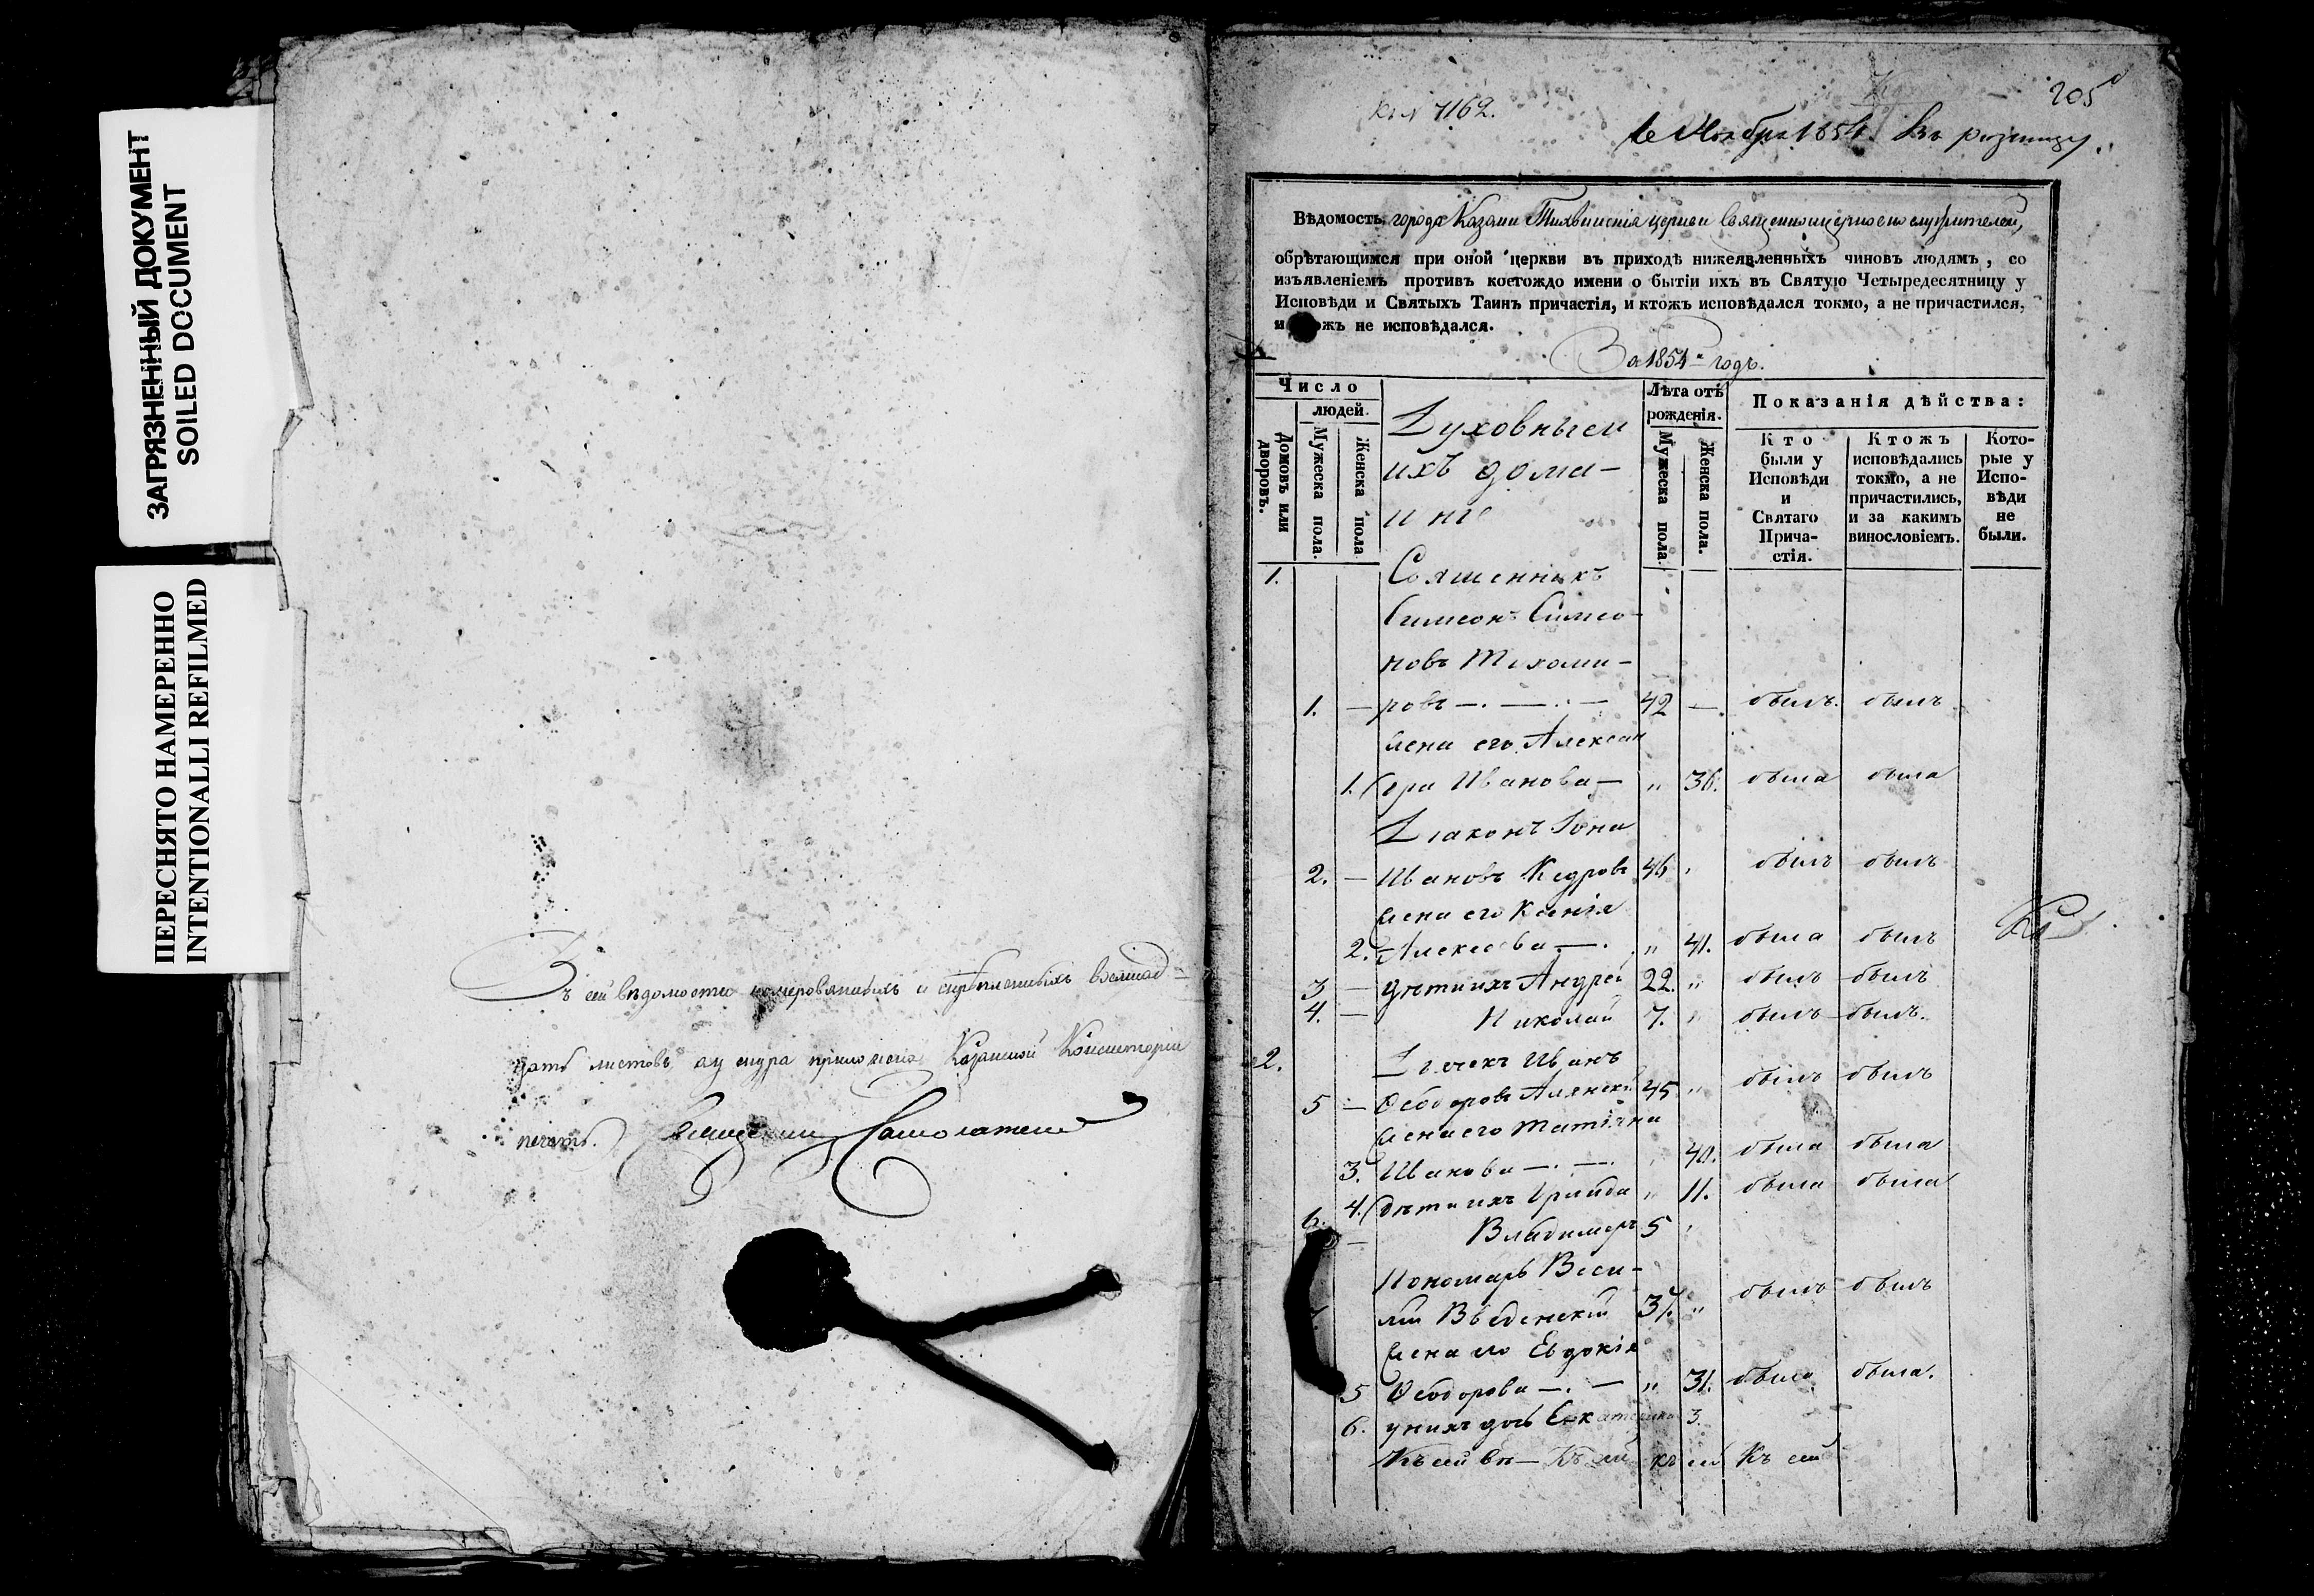 ЗАГРЯЗНЕННЫЙ ДОКУМЕНТ
SOILED DOCUMENT
ПЕРЕСНЯТО НАМЕРЕННО
INTENTIONALLI REFILMED
Въ сей вѣдомости номерованныхъ и скрѣпленныхъ восемнад-
цать листовъ, къ шнуру приложена Казанской Консисторіи
печать.
205
1162.
Ноября 1854. Въ ризницу.
Вѣдомость города Казани Тихвинскія церкви священноцерковнослужителей,
обрѣтающимся при оной церкви въ приходѣ нижеявленныхъ чиновъ людямъ, со
изъявленіемъ противъ коегождо имени о бытіи ихъ въ Святую Четыредесятницу у
Исповѣди и Святыхъ Таинъ причастія, и ктожъ исповѣдался токмо, а не причастился,
и жъ не исповѣдался.
За 1854 годъ.
Число
людей.
Домовъ или дворовъ.
Мужеска пола.
Женска пола
Духовныеи
ихъ дома-
шніе
Лѣта отъ рожденія.
Мужеска пола.
Женска пола.
Показанія дѣйства:
Кто были у Исповѣди и Святаго Прича-стія.
Ктожъ исповѣдались токмо, а не причастились, и за какимъ винословіемъ.
Кото-рые у Испо-вѣди не были.
1. Священникъ
Симеонъ Симео-
новъ Тихоми-
1. — ровъ — 42 — былъ. былъ
Жена его Алексан
1. дра Иванова — " 36. была была
Діаконъ Іона
2. — Ивановъ Кедровъ 46 " былъ былъ
Жена его Ксенія
2. Алексѣева — " 41. была былъ
3 — дѣти ихъ Андрей 22. " былъ былъ
4. — Николай 7. " былъ былъ.
2. Дьячекъ Иванъ
5 — Ѳеодоровъ 45 " былъ былъ
Жена его Татіяна
3. Иванова — " 40. была была
4. дѣти ихъ " 11. была была
6. — Владимеръ 5 "
Пономарь Васи-
лій Введенскій 37. " былъ былъ
Жена его Евдокія
5 Ѳеодорова — " 31. была была.
6. у нихъ дочь Екатерина 3.
Къ сей вѣ- Къ сей къ сей Къ сей